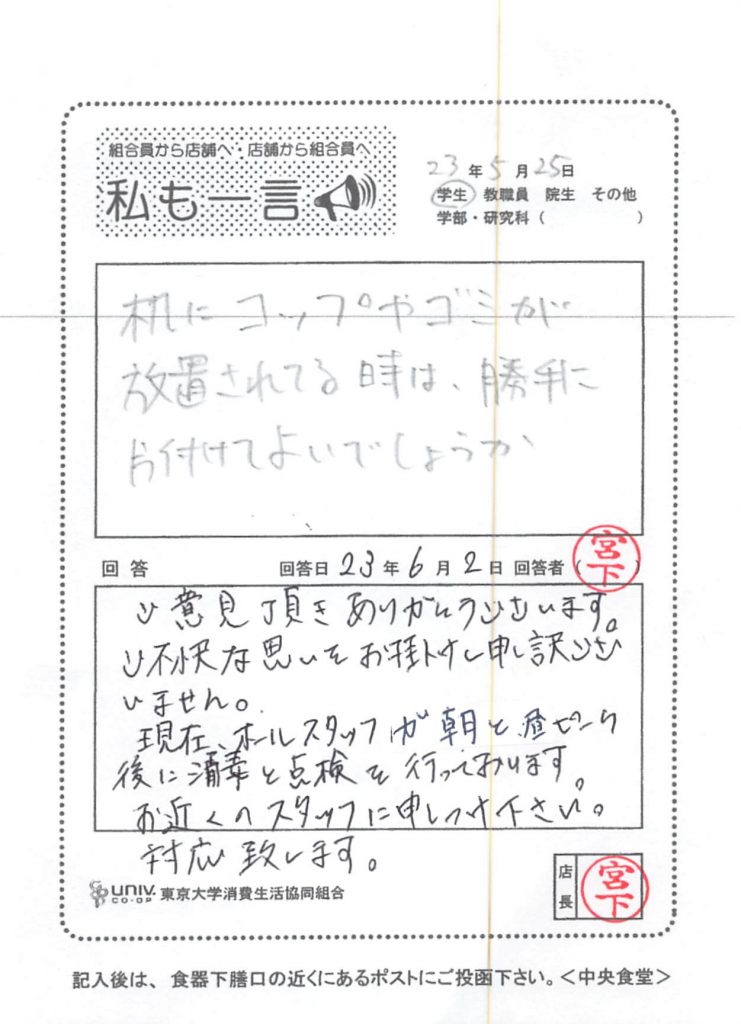 組合員から店舗へ・店舗から組合員へ
私も一言
23年5月25日
学生 教職員 院生 その他
学部・研究科（　　　　　）
机にコップやゴミが
放置されてる時は、勝手に
片付けてよいでしょうか
回答 回答日 23年6月2日 回答者（宮下）
ご意見頂きありがとうございます。
ご不快な思いをお掛けし申し訳ござ
いません。
現在、ホールスタッフが朝と昼ピーク
後に清掃と点検を行っております。
お近くのスタッフに申しつけ下さい。
対応致します。
UNIV. CO-OP 東京大学消費生活協同組合
店長 宮下
記入後は、食器下膳口の近くにあるポストにご投函下さい。＜中央食堂＞